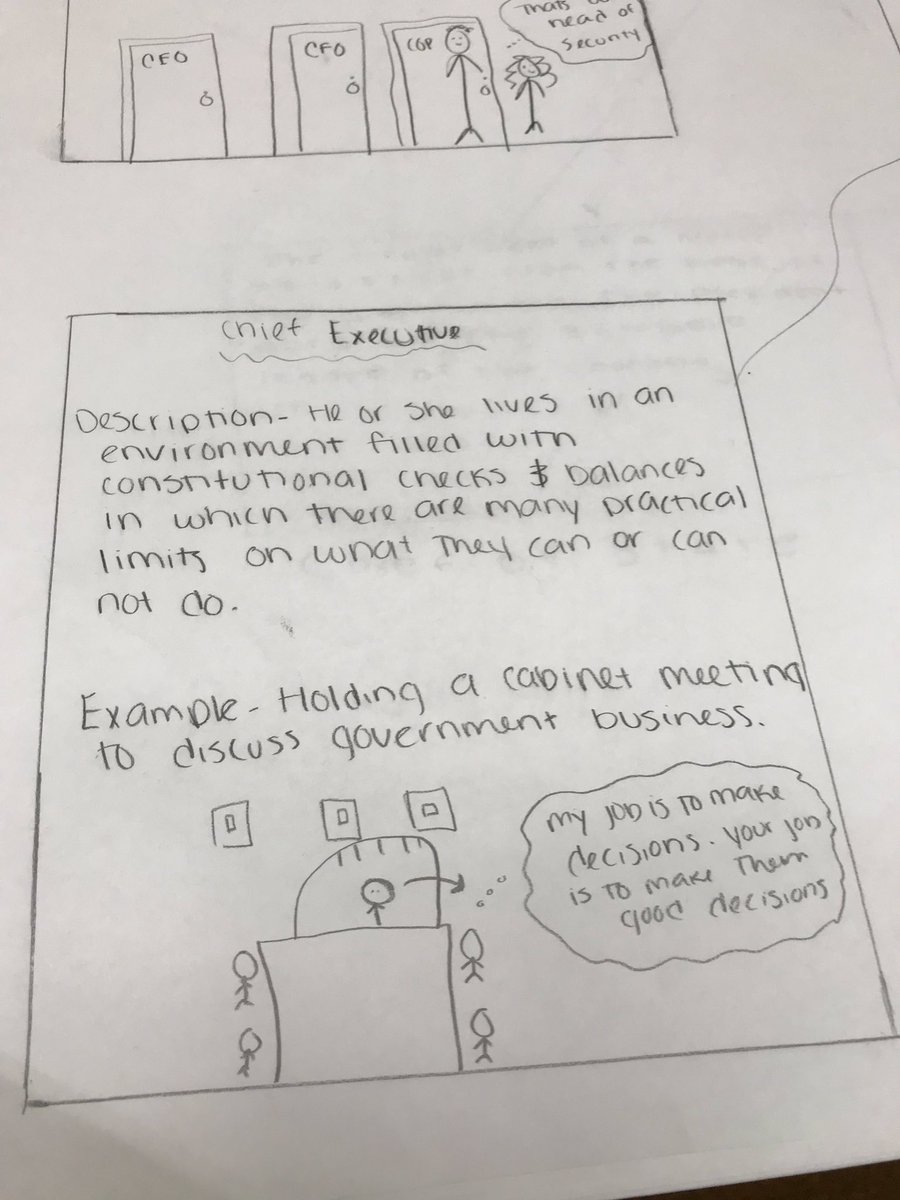 CFO
CFO
Thats
head of
security
Chief Executive
Description - He or she lives in an
environment filled with
constitutional checks & balances
in which there are many practical
limits on what they can or can
not do.
Example - Holding a cabinet meeting
to discuss government business.
my job is to make
decisions. your job
is to make them
good decisions